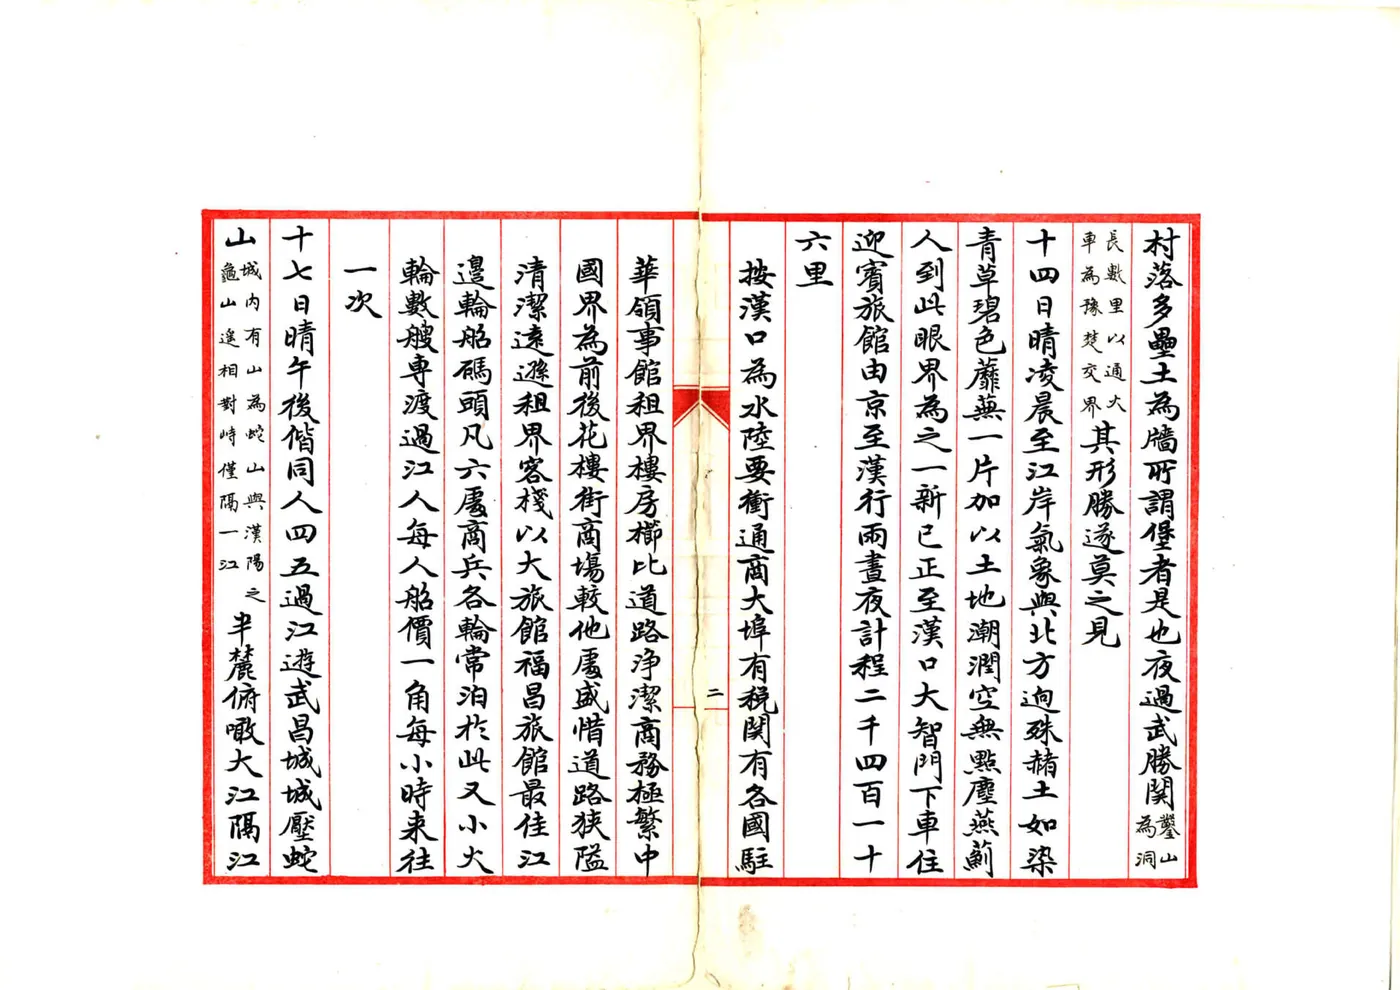 村落多壘土為牆所謂堡者是也夜過武勝関鑿山為洞
長數里以通火車為豫楚交界其形勝遂莫之見
十四日晴凌晨至江岸氣象與北方逈殊赭土如染
青草碧色蘼蕪一片加以土地潮潤空無點塵燕薊
人到此眼界為之一新已正至漢口大智門下車住
迎賓旅館由京至漢行兩晝夜計程二千四百一十
六里
按漢口為水陸要衝通商大埠有税関有各國駐
二
華領事館租界樓房櫛比道路浄潔商務極繁中
國界為前後花樓街商塲較他處盛惜道路狹隘
清潔遠遜租界客棧以大旅館福昌旅館最佳江
邊輪船碼頭凡六處商兵各輪常泊於此又小火
輪數艘専渡過江人每人船價一角每小時来往
一次
十七日晴午後偕同人四五過江遊武昌城城壓蛇
山城内有山為蛇山與漢陽之龜山遥相對峙僅隔一江半麓俯瞰大江隔江